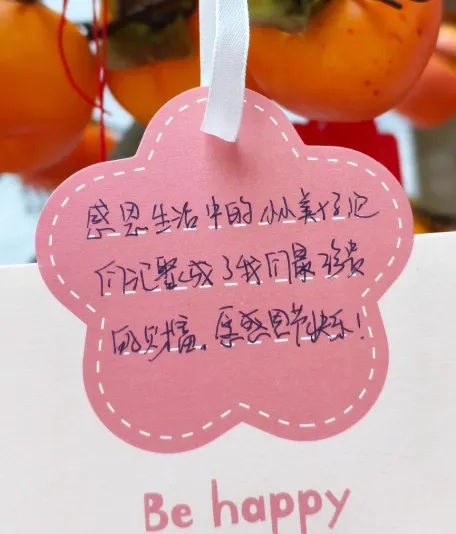 感恩生活中的小小美好它
们汇聚成了我们最珍贵
的财富,感恩节快乐!
Be happy